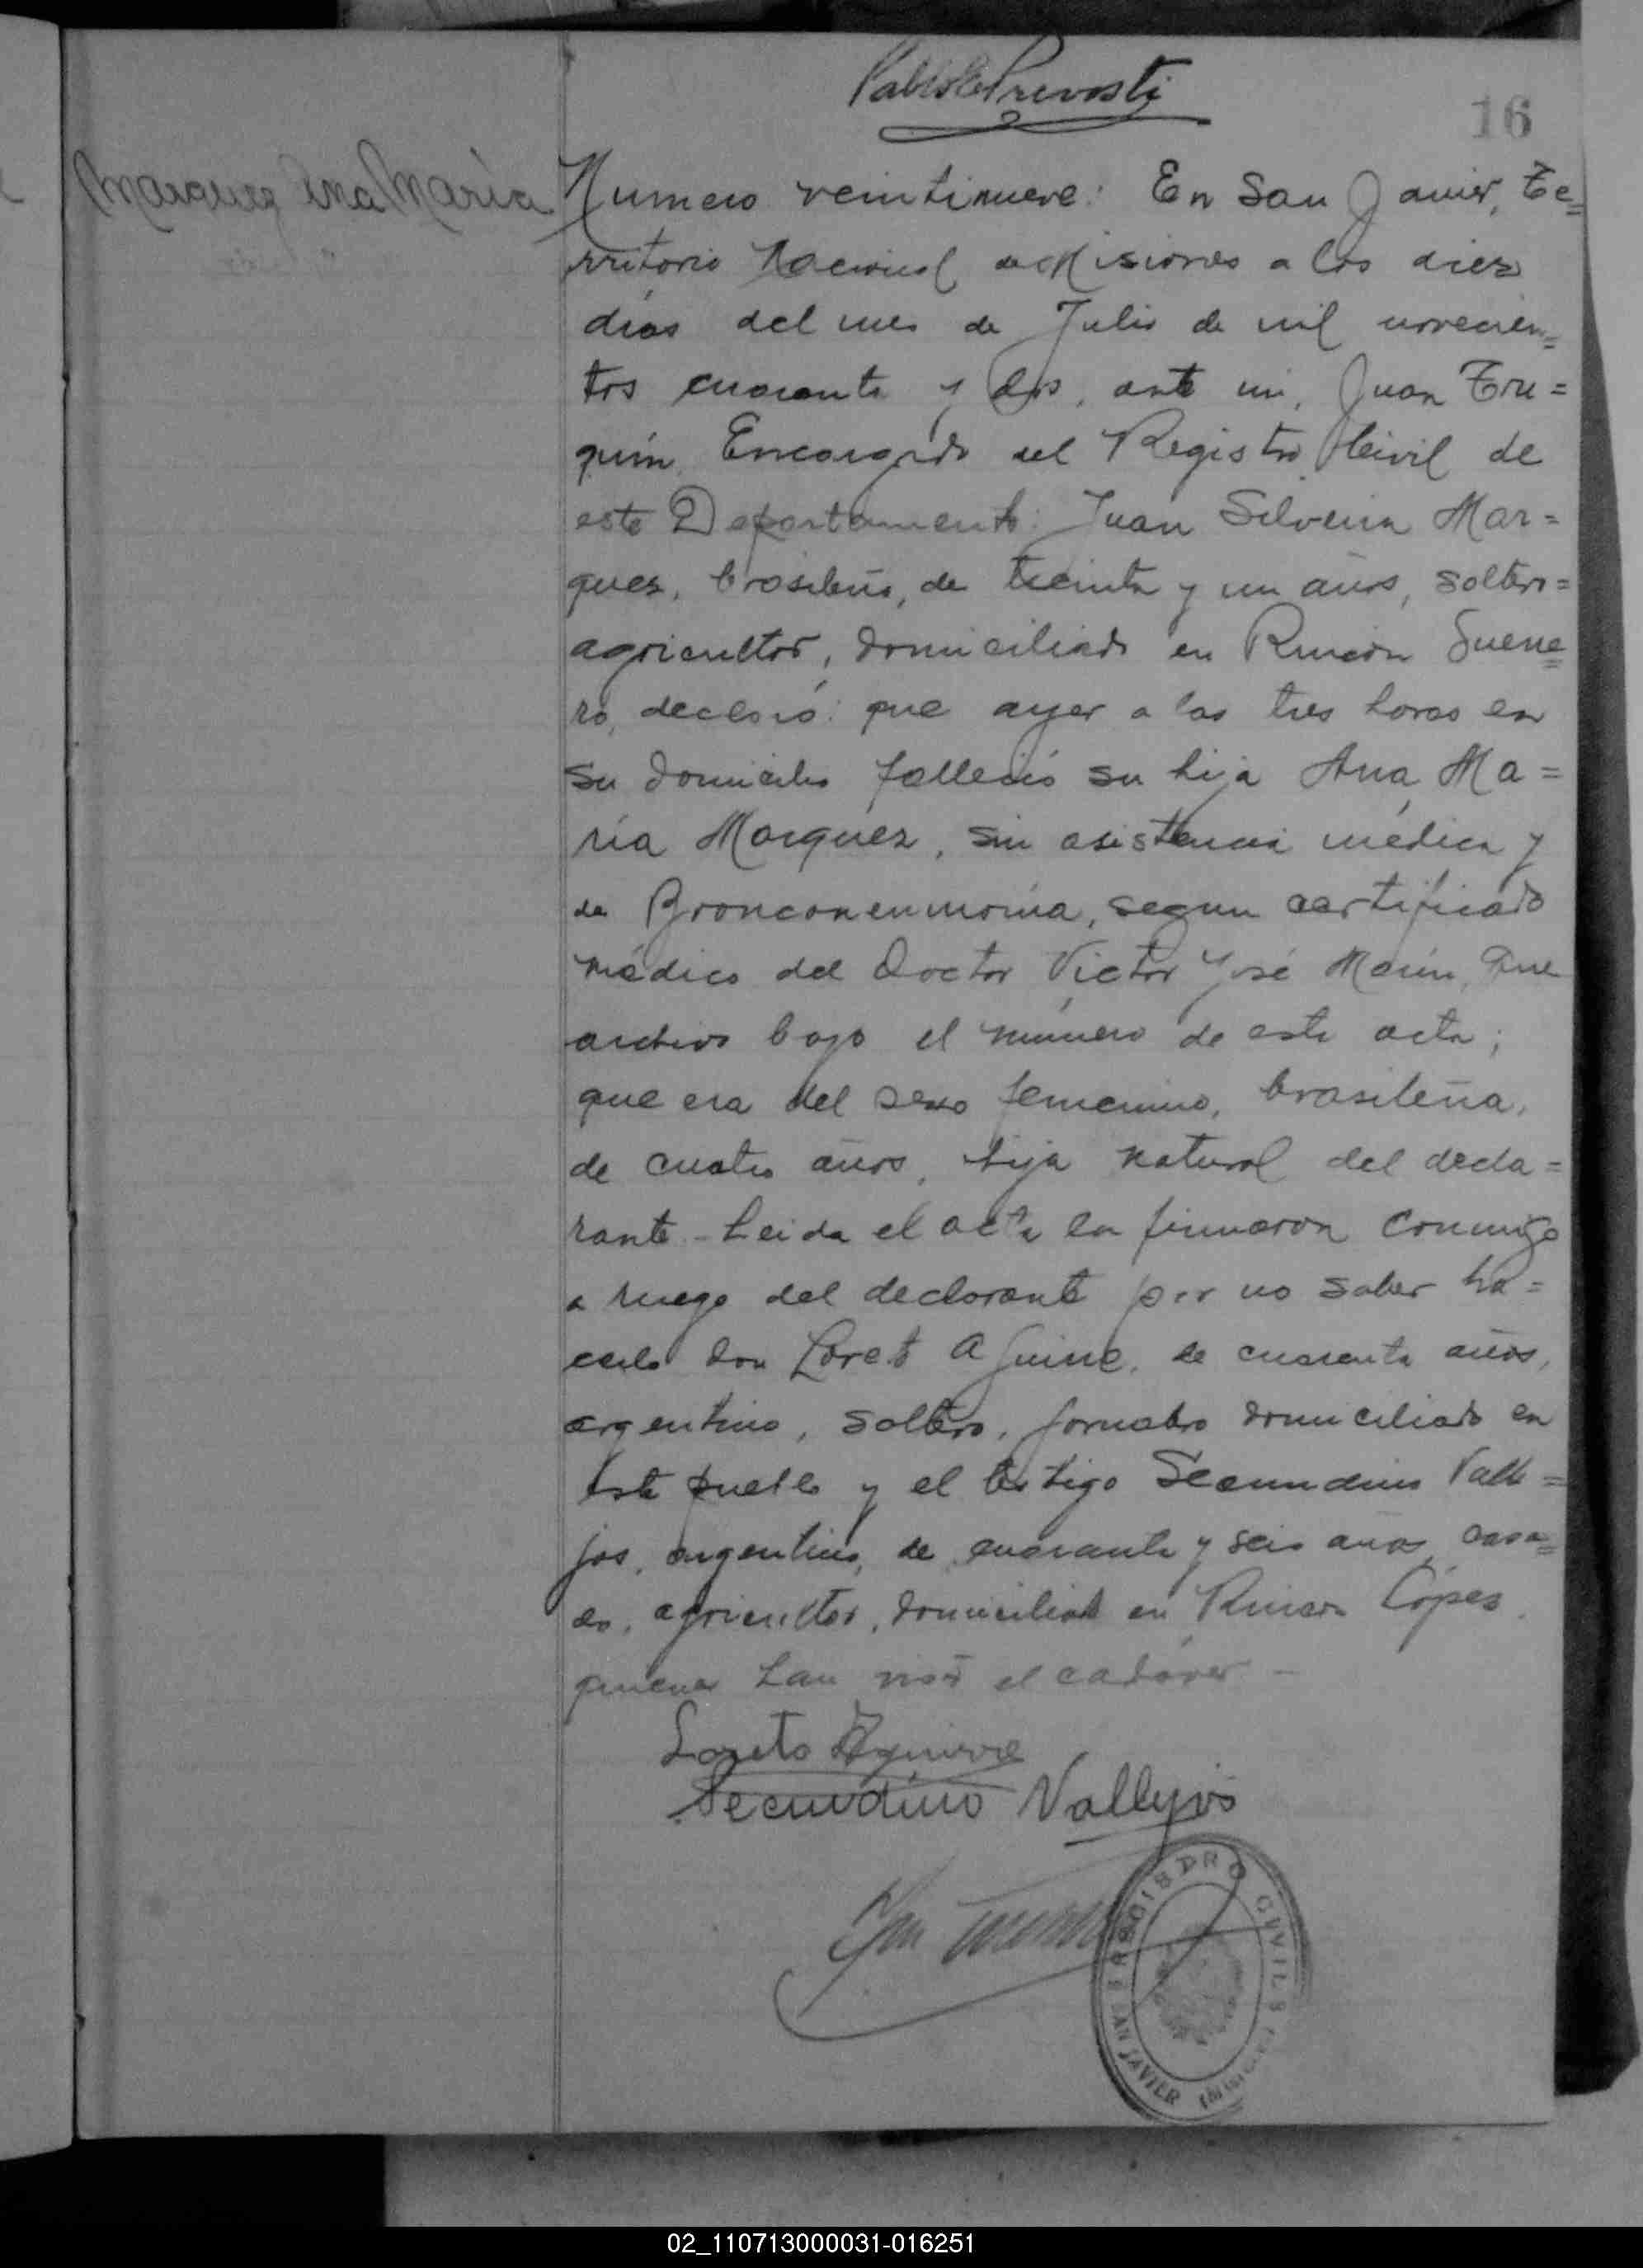 Pablo Prevosti
16
Marquez Ana María
Numero veintinueve: En San Javier, Te=
rritorio Nacional de Misiones a los diez
días del mes de Julio de mil novecien=
tos cuarenta y dos, ante mi, Juan Tru=
quin Encargado del Registro Civil de
este Departamento: Juan Silveira Mar=
quez, brasileño, de treinta y un años, soltero=
agricultor, domiciliado en Rincón Guerre=
ro, declaró: que ayer a las tres horas en
su domicilio falleció su hija Ana Ma=
ría Marquez, sin asistencia médica y
de Bronconeumonía, segun certificado
médico del Doctor Víctor José Marín, que
archivo bajo el número de esta acta;
que era del sexo femenino, brasileña,
de cuatro años, hija natural del decla=
rante - Leida el acta la firmaron conmigo
a ruego del declarante por no saber ha=
cerlo don Loreto Aguirre, de cuarenta años,
argentino, soltero, jornalero domiciliado en
este pueblo y el testigo Secundino Valle=
jos, argentino, de cuarenta y seis años, casa=
do, agricultor, domiciliado en Rincon López
quienes han visto el cadáver -
Loreto Aguirre
Secundino Vallejos
Juan
REGISTRO CIVIL
SAN JAVIER
02_110713000031-016251